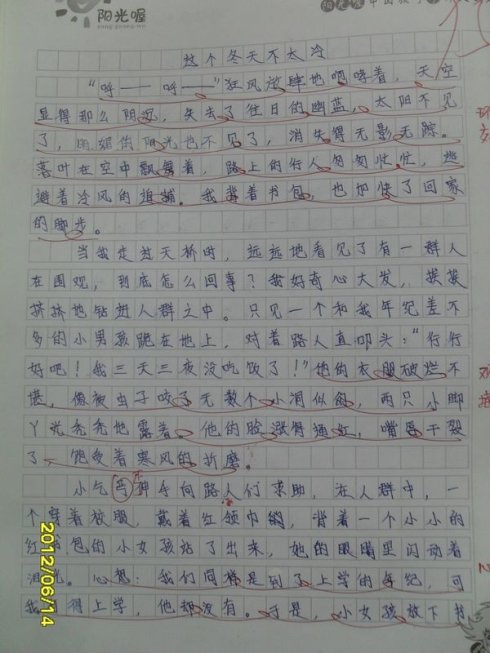 阳光喔
这个冬天不太冷
“呼——呼——”狂风放肆地咆哮着，天空
显得那么阴沉，失去了往日的幽蓝，太阳不见
了，明媚的阳光也不见了，消失得无影无踪。
落叶在空中飘舞着，路上的行人匆匆忙忙，逃
避着冷风的追捕。我背着书包，也加快了回家
的脚步。
当我走过天桥时，远远地看见了有一群人
在围观，到底怎么回事？我好奇心大发，挨挨
挤挤地钻进人群之中。只见一个和我年纪差不
多的小男孩跪在地上，对着路人直叩头：“行行
好吧！我三天三夜没吃饭了！”他的衣服破烂不
堪，像被虫子咬了无数个小洞似的，两只小脚
丫光秃秃地露着。他的脸涨得通红，嘴唇干裂
了，饱受着寒风的折磨。
小气丐伸手向路人们求助，在人群中，一
个穿着校服，戴着红领巾的，背着一个小小的
红书包的小女孩站了出来，她的眼睛里闪动着
泪光。心想：我们同样是到了上学的年纪，可
我们得上学，他却没有。于是，小女孩放下书
2012/06/14